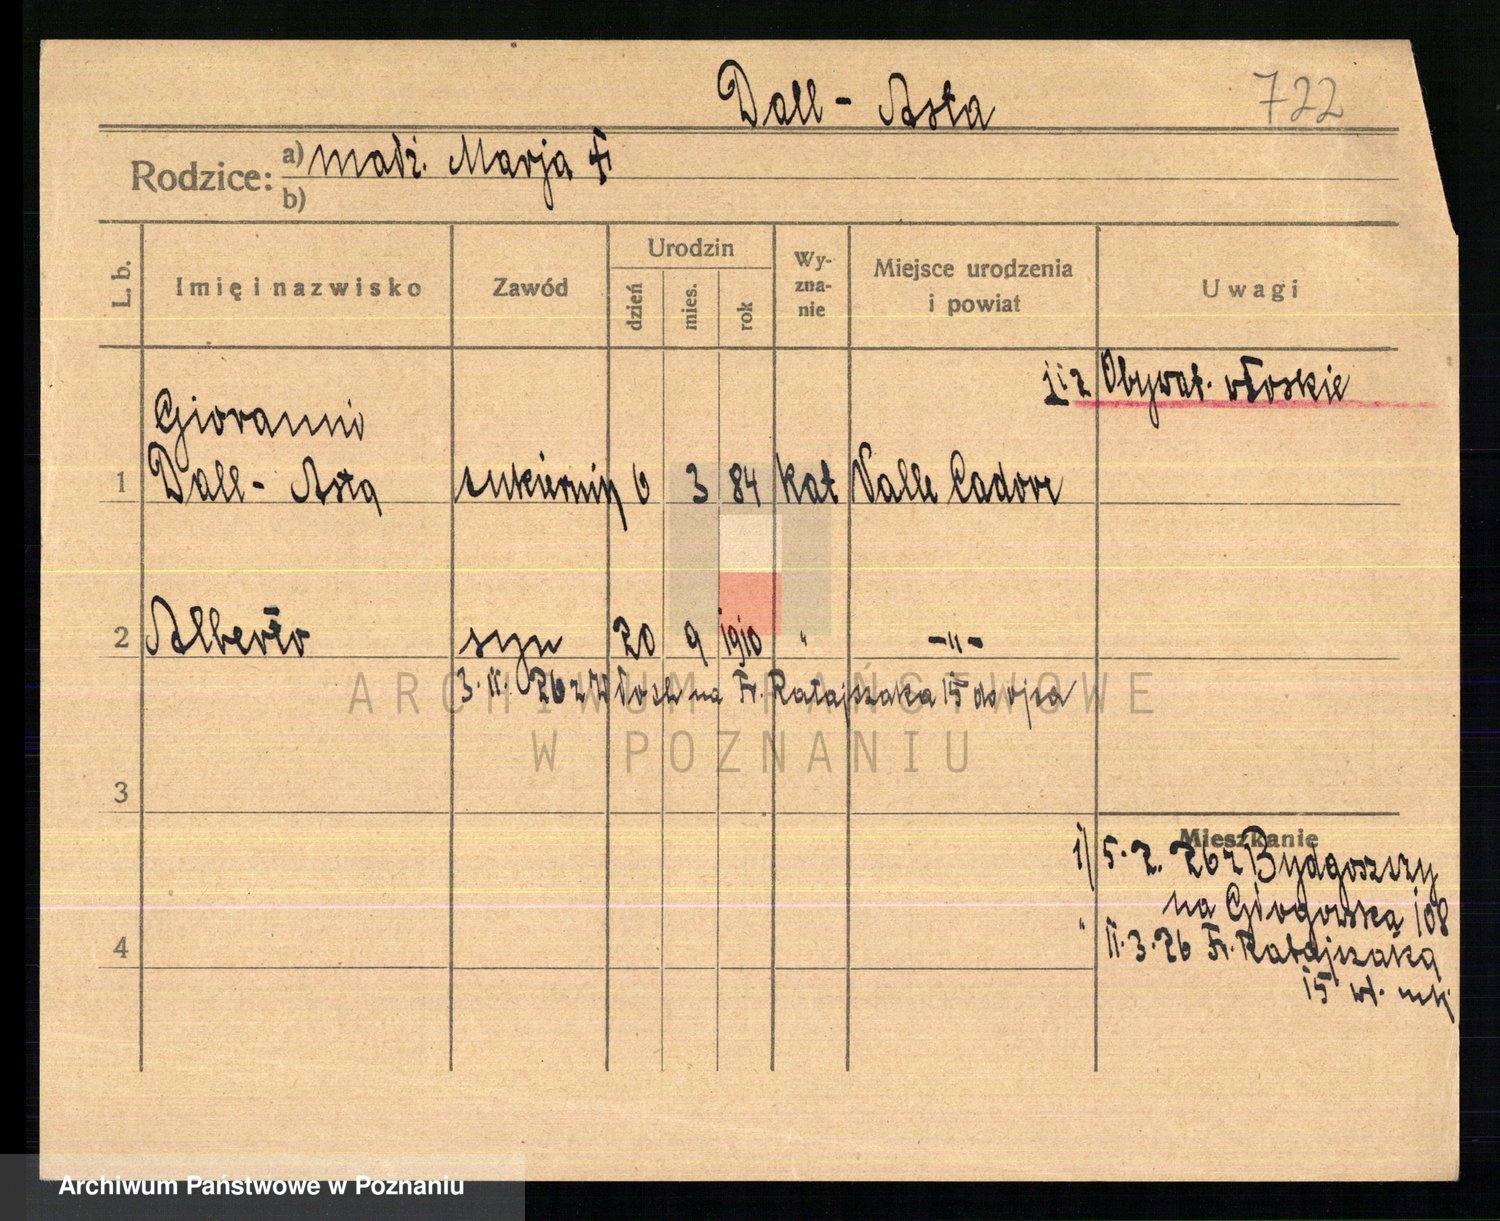 Dall - Asta
722
Rodzice: a) małż. Marja
b)
L. b.
Imię i nazwisko
Zawód
Urodzin
dzień
mies.
rok
Wy-
zna-
nie
Miejsce urodzenia
i powiat
Uwagi
1 i 2 Obywat. włoskie
Giovanni
1 Dall - Asta cukiernik 6 3 84 kat Valle Cadore
2 Alberto syn 20 9 1910 " -"-
na Fr. Ratajczaka 15 do ojca
ARCHIWUM PAŃSTWOWE
W POZNANIU
3
Mieszkanie
1) 5.2.26 z Bydgoszczy
na Głogowską 108
4
" 11.3.26 Fr. Ratajczaka
15
Archiwum Państwowe w Poznaniu